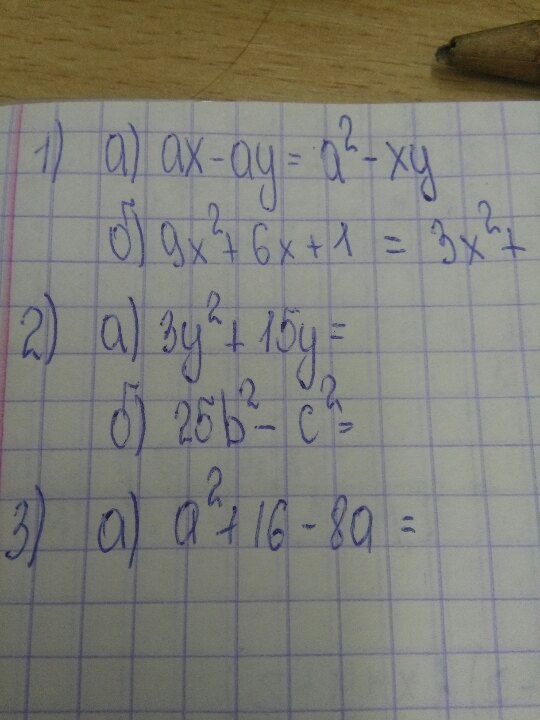 1) а) ax - ay = a² - xy
б) 9x² + 6x + 1 = 3x² +
2) а) 3y² + 15y =
б) 25b² - c² =
3) а) a² + 16 - 8a =